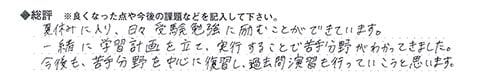 ◆総評 ※良くなった点や今後の課題などを記入して下さい。
夏休みに入り、日々受験勉強に励むことができています。
一緒に学習計画を立て、実行することで苦手分野がわかってきました。
今後も、苦手分野を中心に復習し、過去問演習も行っていこうと思います。